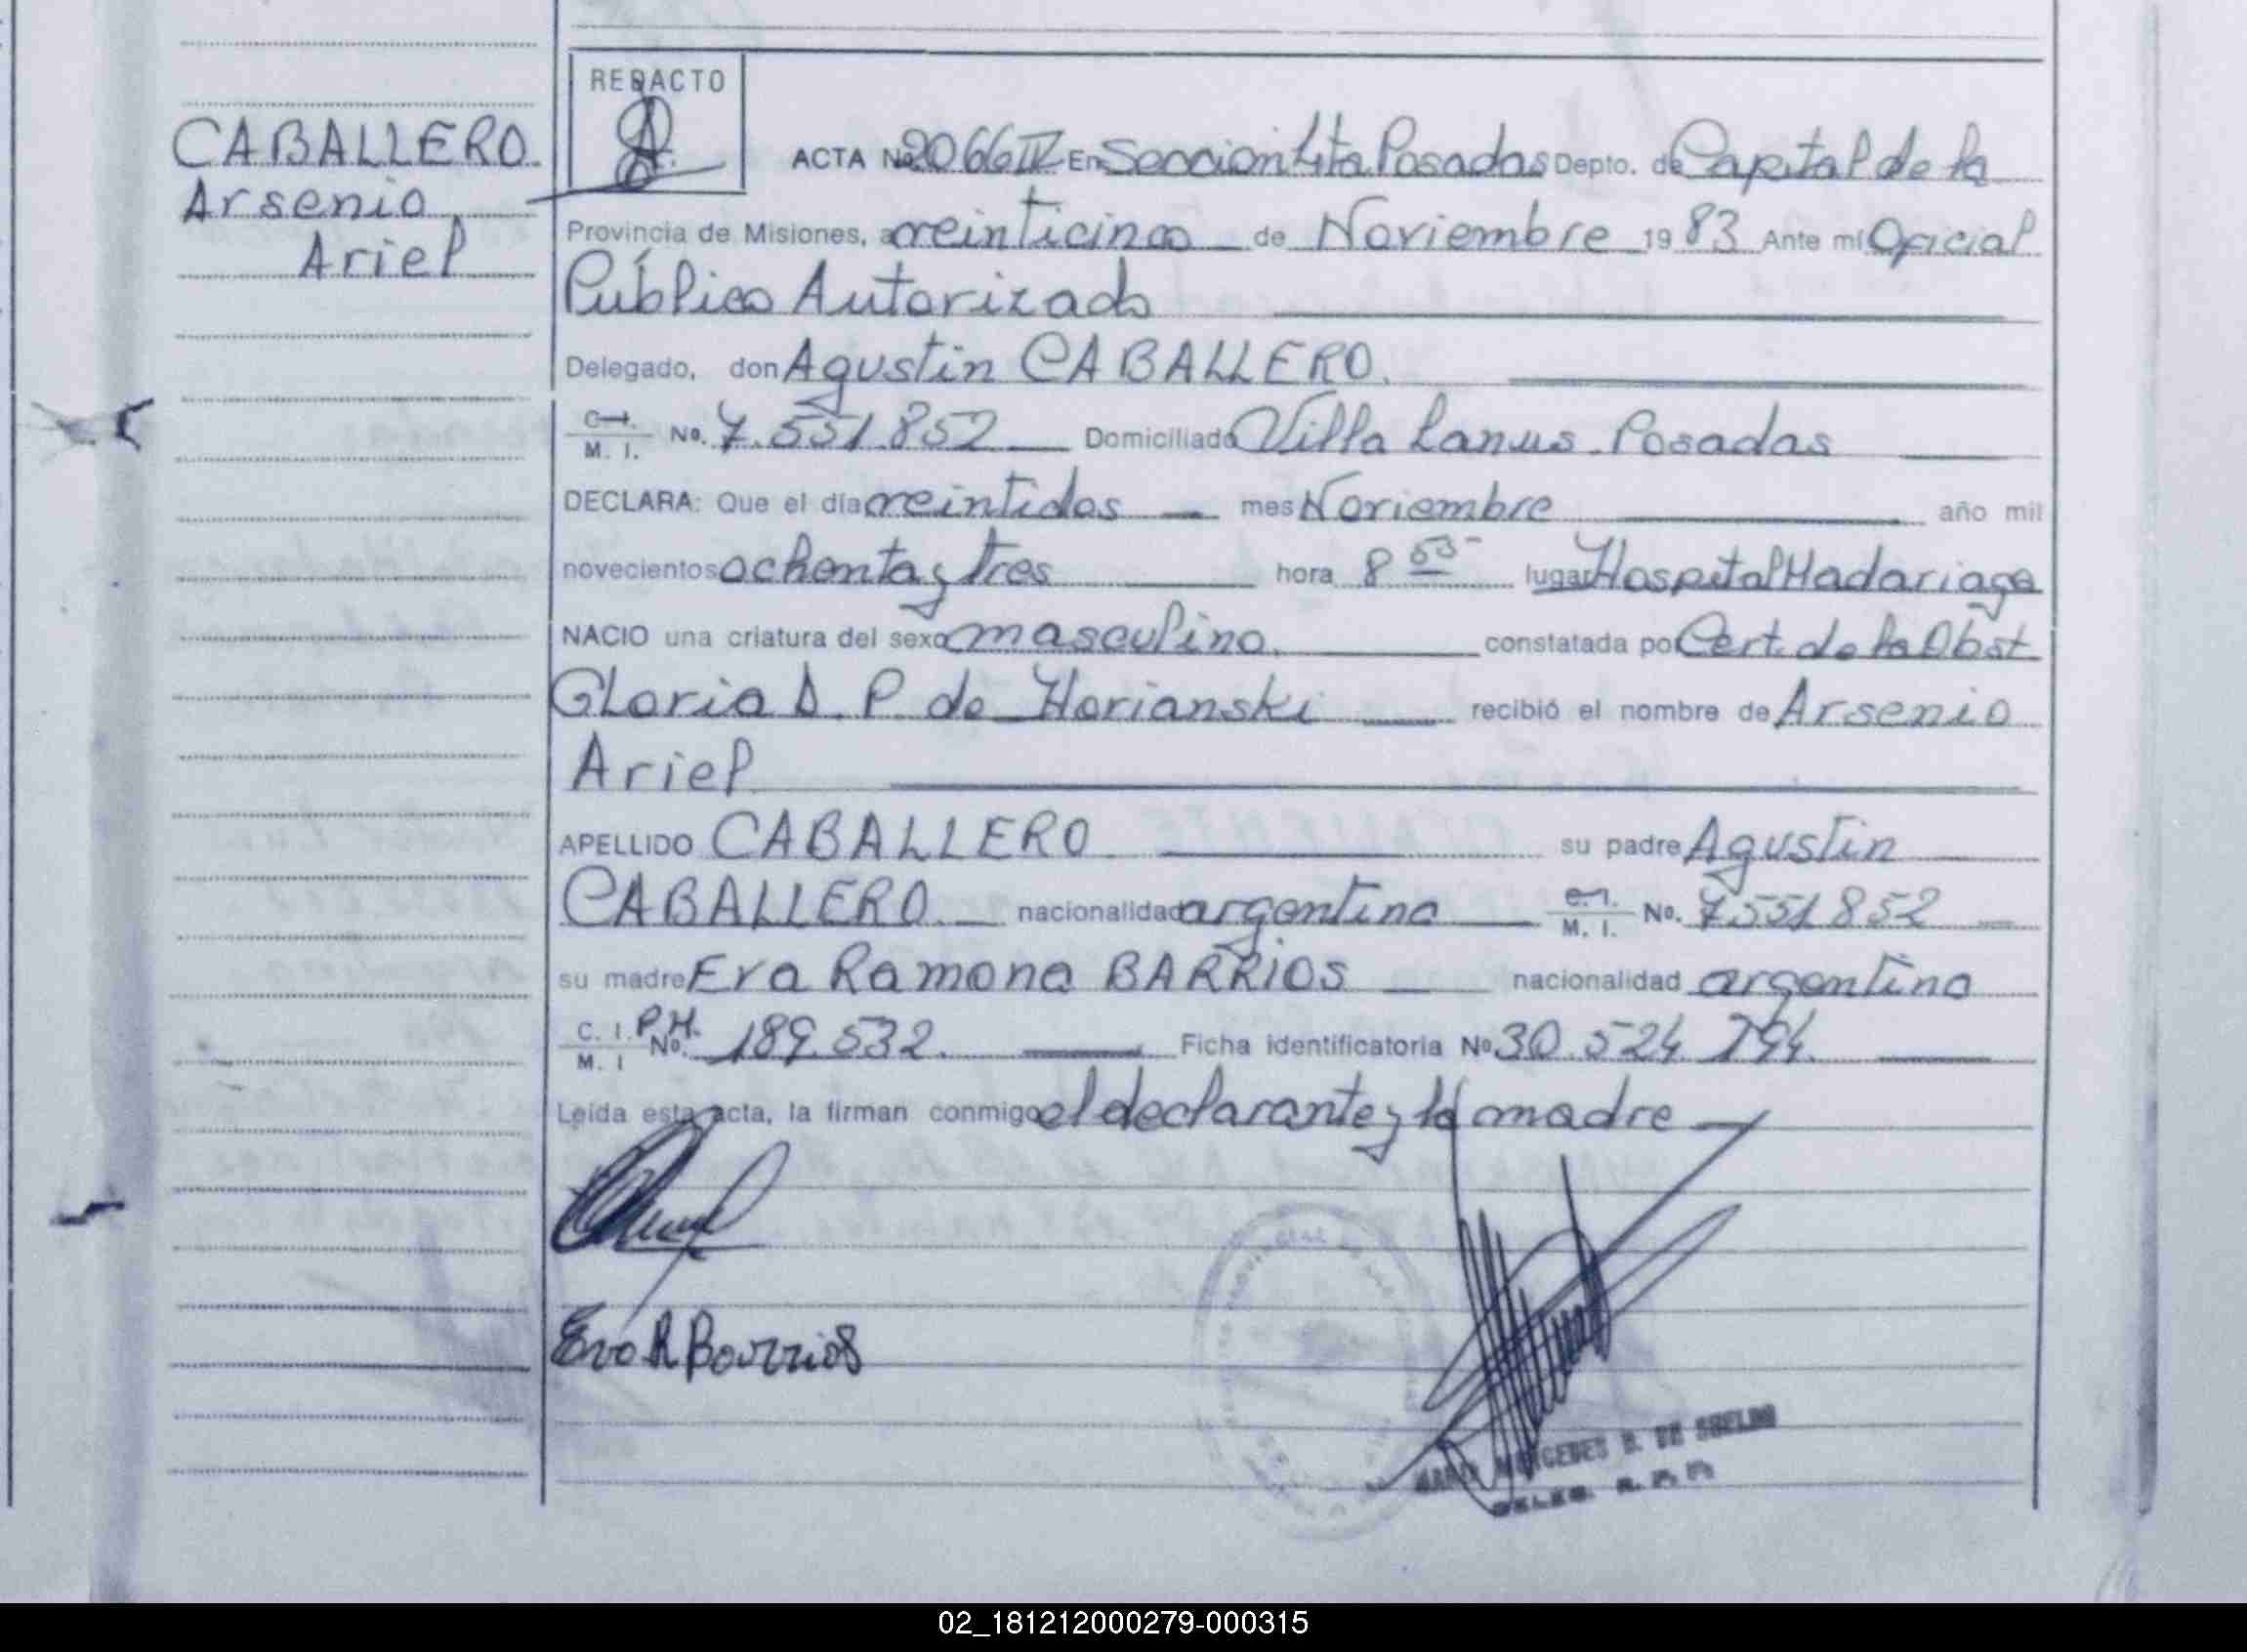 CABALLERO
Arsenio
Ariel
REDACTO
ACTA Nº 2066 IV En Seccion 4ta Posadas Depto. de Capital de la
Provincia de Misiones, a veinticinco de Noviembre 19 83 Ante mí Oficial
Público Autorizado
Delegado, don Agustin CABALLERO.
C. I. M. I. No. 7.551.852 Domiciliado Villa Lanus - Posadas
DECLARA: Que el día veintidos mes Noviembre año mil
novecientos ochenta y tres hora 8 55 lugar Hospital Madariaga
NACIO una criatura del sexo masculino. constatada por Cert. de la Obst
Gloria D. P. de Horianski recibió el nombre de Arsenio
Ariel
APELLIDO CABALLERO su padre Agustin
CABALLERO. nacionalidad argentina M. I. No. 7.551.852
su madre Eva Ramona BARRIOS nacionalidad argentina
C. I. P.M. M. I No. 189.532. Ficha identificatoria Nº 30.524.794.
Leída esta acta, la firman conmigo el declarante y la madre
Eva R Barrios
MERCEDES B. DE
02_181212000279-000315